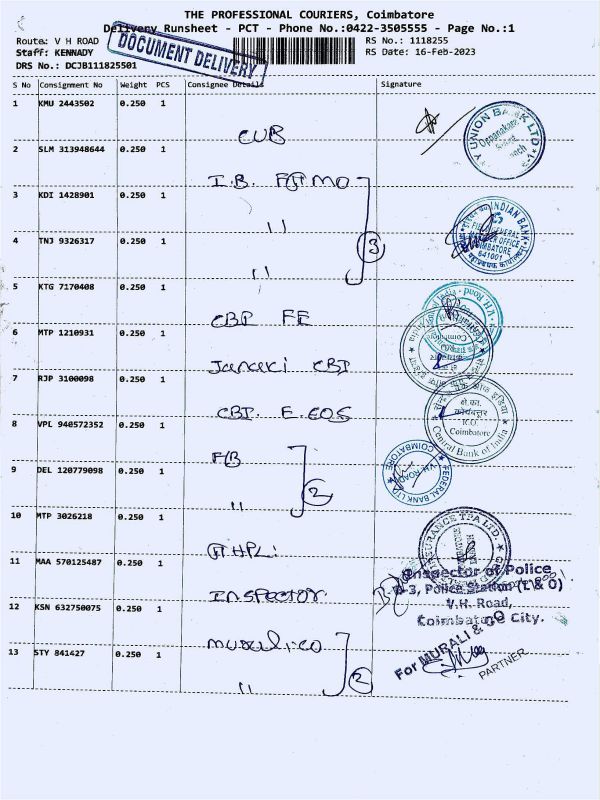 THE PROFESSIONAL COURIERS, Coimbatore
Delivery Runsheet - PCT - Phone No.:0422-3505555 - Page No.:1
Route: V H ROAD
RS No.: 1118255
Staff: KENNADY
RS Date: 16-Feb-2023
DRS No.: DCJB111825501
DOCUMENT DELIVERY
S No Consignment No Weight PCS Consignee Details Signature
1 KMU 2443502 0.250 1
CUB
2 SLM 313948644 0.250 1
I.B.
3 KDI 1428901 0.250 1
"
4 TNJ 9326317 0.250 1
"
3
5 KTG 7170408 0.250 1
CBI FE
6 MTP 1210931 0.250 1
Janaki CBI
7 RJP 3100098 0.250 1
CBI.
8 VPL 940572352 0.250 1
FB
9 DEL 120779098 0.250 1
"
2
10 MTP 3026218 0.250 1
11 MAA 570125487 0.250 1
INSPECTOR
12 KSN 632750075 0.250 1
Murali co
13 STY 841427 0.250 1
"
2
UNION BANK LTD
INDIAN BANK
COIMBATORE
641001
V.H. Road
क्षे.का.
कोयंबत्तूर
I.C.O.
Coimbatore
Central Bank of India
FEDERAL BANK LTD
V.H. ROAD
COIMBATORE
INSURANCE TPA LTD.
Inspector of Police
B-3, Police Station (L & O)
V.H. Road,
Coimbatore City.
For MURALI & CO
PARTNER